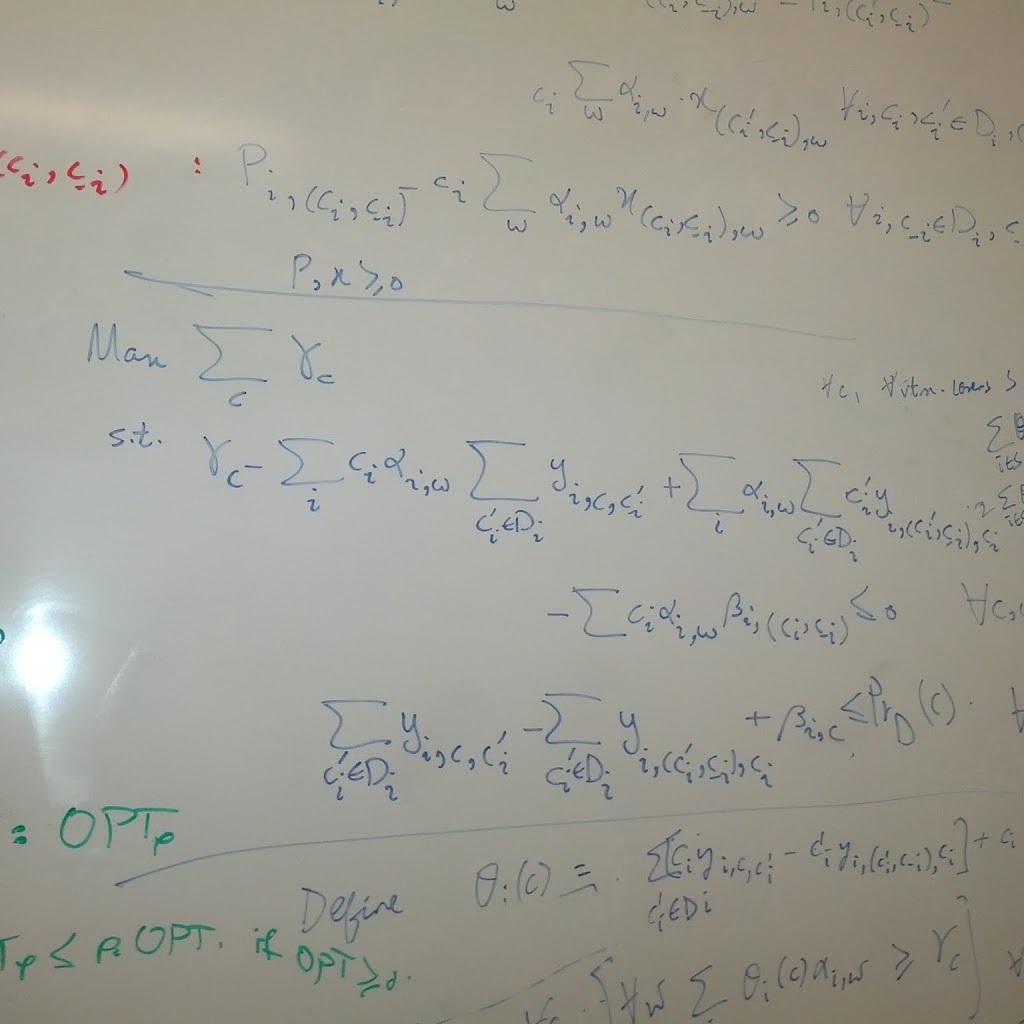 c_i ∑_w α_{i,w} · x_{(c_i', c_{-i}), w} ∀i, c_i, c_i' ∈ D_i,
(c_i, c_{-i}) : P_{i,(c_i, c_{-i})} - c_i ∑_w α_{i,w} x_{(c_i, c_{-i}), w} ≥ 0 ∀i, c_{-i} ∈ D_i,
P, x ≥ 0
Max ∑_c γ_c
∀c,
s.t. γ_c - ∑_i c_i α_{i,w} ∑_{c_i' ∈ D_i} y_{i,c,c_i'} + ∑_i α_{i,w} ∑_{c_i' ∈ D_i} c_i' y_{i,(c_i', c_{-i}), c_i}
- ∑ c_i α_{i,w} β_{i,(c_i, c_{-i})} ≤ 0 ∀c,
∑_{c_i' ∈ D_i} y_{i,c,c_i'} - ∑_{c_i' ∈ D_i} y_{i,(c_i', c_{-i}), c_i} + β_{i,c} ≤ Pr_D(c). ∀
: OPT_p
Define θ_i(c) ≡ ∑_{c_i' ∈ D_i} [c_i y_{i,c,c_i'} - c_i' y_{i,(c_i', c_{-i}), c_i}] + c_i
≤ OPT. if OPT ≥ 0.
{∀w ∑ θ_i(c) α_{i,w} ≥ γ_c} ∀